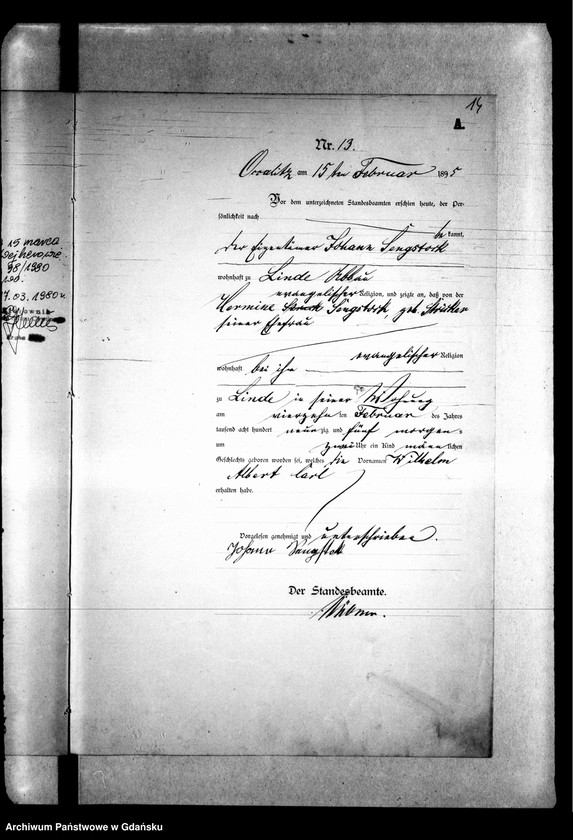 14
A.
Nr. 13.
am 15ten Februar 1895
Vor dem unterzeichneten Standesbeamten erschien heute, der Per-
sönlichkeit nach
be kannt,
der Eigenthümer Johann Sengstock
wohnhaft zu Linde Abbau
evangelischer Religion, und zeigte an, daß von der
Hermine Sengstock, geb.
seiner Ehefrau
evangelischer Religion
wohnhaft bei ihm
zu Linde in seiner Wohnung
am vierzehn ten Februar des Jahres
tausend acht hundert neun zig und fünf morgens
um zwei Uhr ein Kind männ lichen
Geschlechts geboren worden sei, welches die Vornamen Wilhelm
Albert Carl
erhalten habe.
Vorgelesen, genehmigt und unterschrieben.
Johann Sengstok
Der Standesbeamte.
15 marca
98/1980
17.03.1980r.
Archiwum Państwowe w Gdańsku